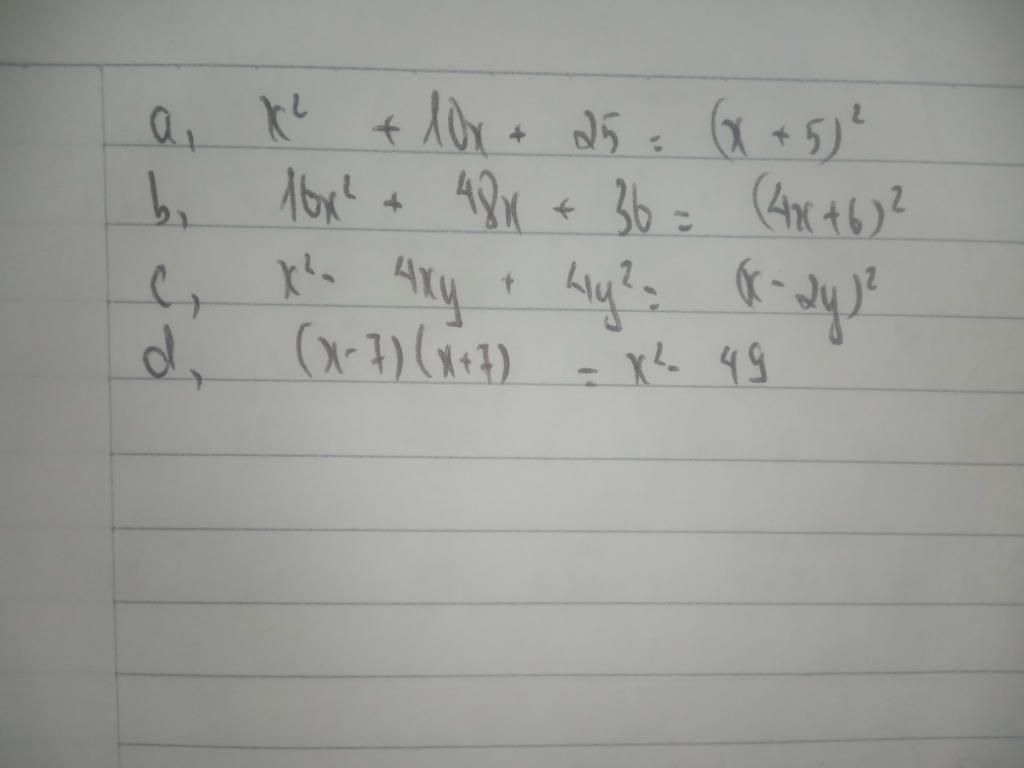 a, x² + 10x + 25 = (x + 5)²
b, 16x² + 48x + 36 = (4x+6)²
c, x² - 4xy + 4y² = (x - 2y)²
d, (x-7)(x+7) = x² - 49